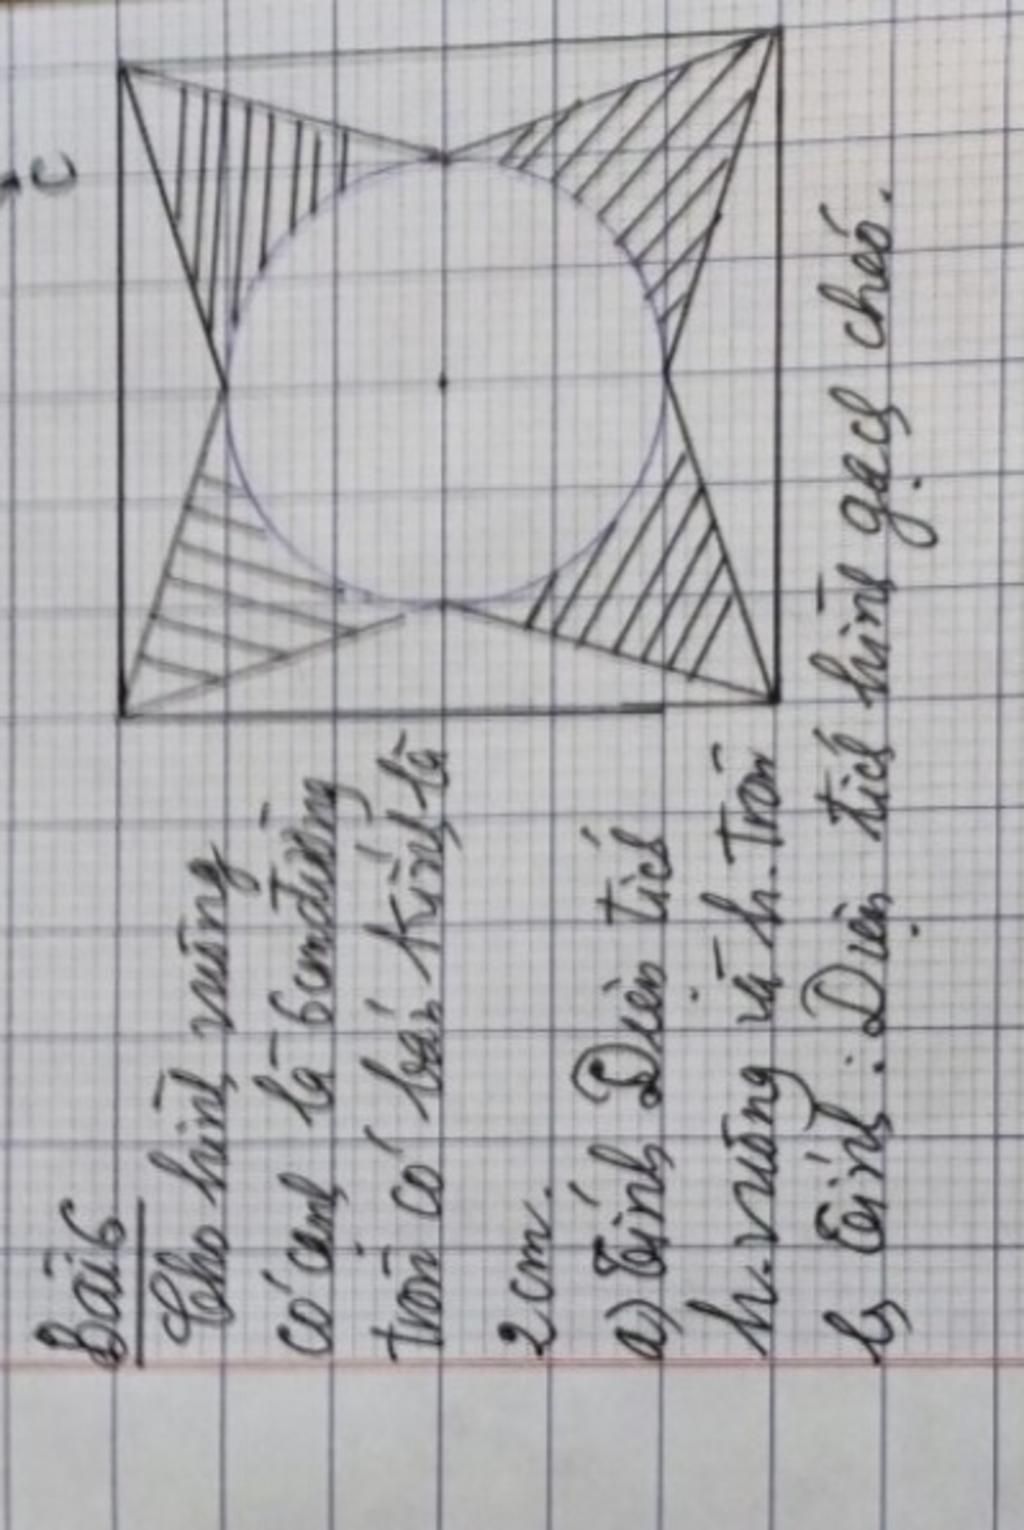 Bài 6
Cho hình vuông
có cạnh là 6cm đường
tròn có bán kính là
2cm.
a) Tính Diện tích
h.vuông và h.tròn
b, Tính: Diện tích hình gạch chéo.